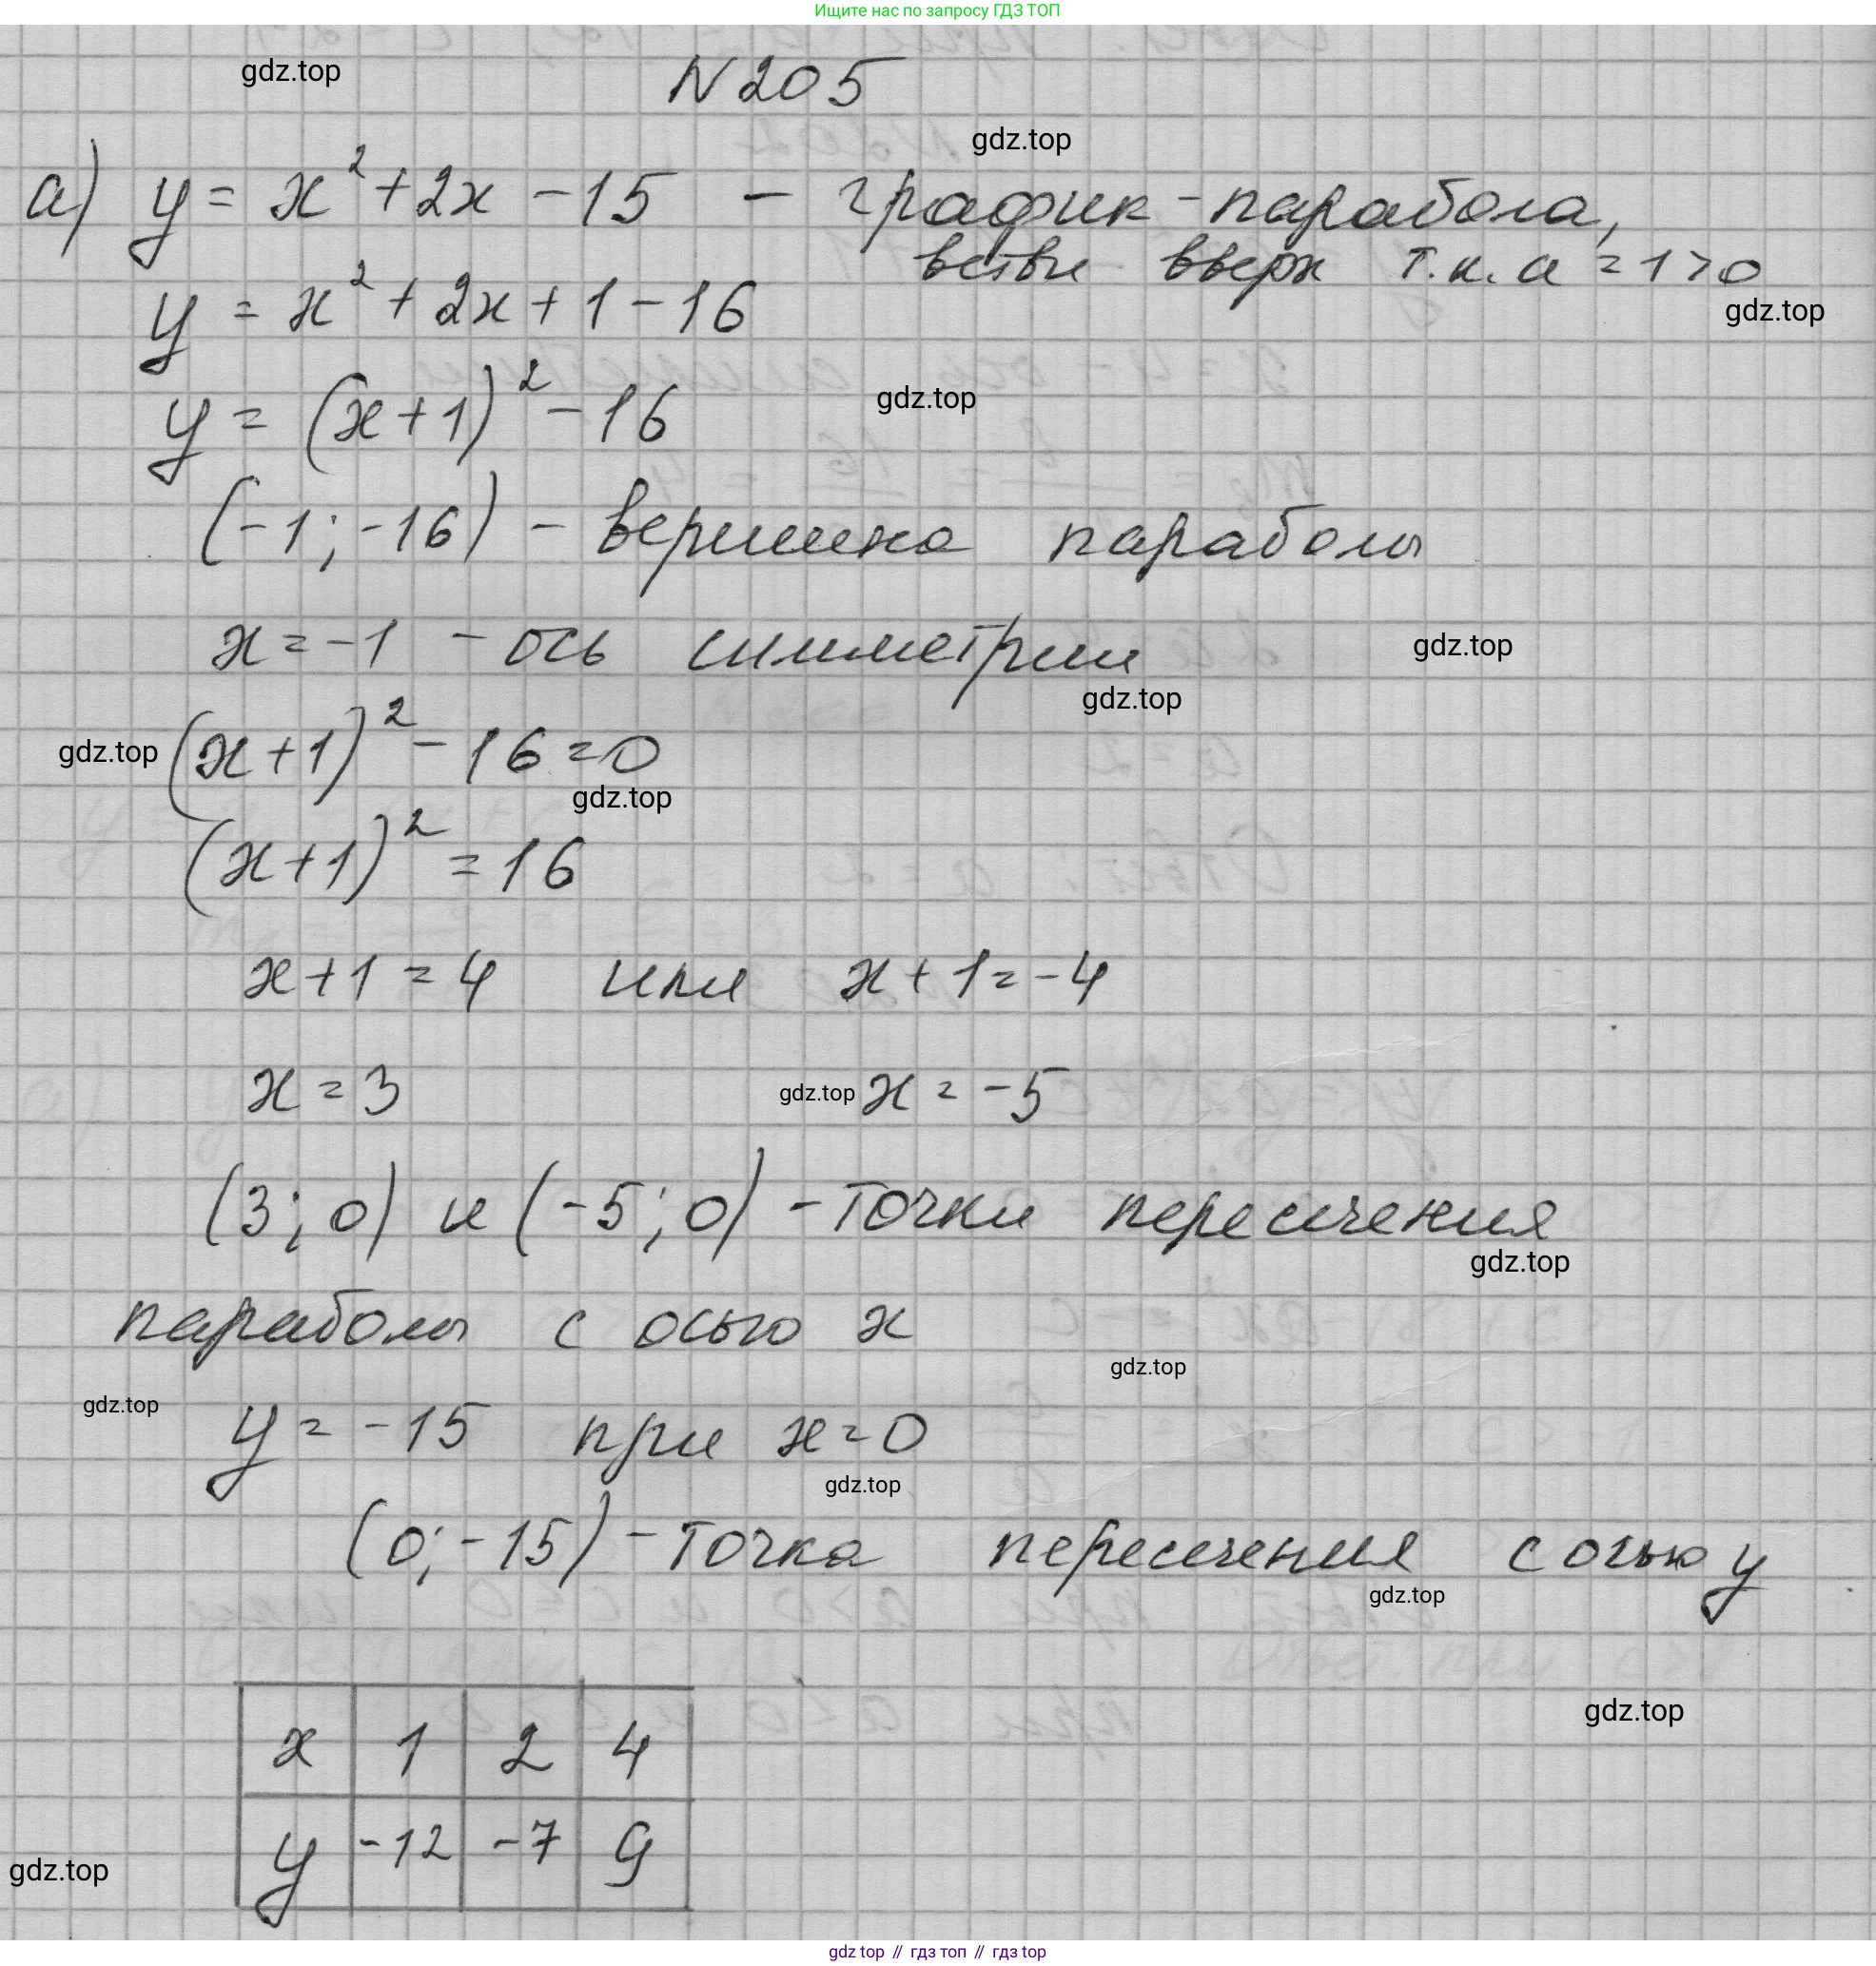 Ищите нас по запросу ГДЗ ТОП
gdz.top
N 205
gdz.top
а) y = x² + 2x - 15 - график - парабола,
ветви вверх т.к. a = 1 > 0
gdz.top
y = x² + 2x + 1 - 16
y = (x+1)² - 16
gdz.top
(-1; -16) - вершина параболы
x = -1 - ось симметрии
gdz.top
gdz.top
gdz.top (x+1)² - 16 = 0
gdz.top
(x+1)² = 16
x + 1 = 4 или x + 1 = -4
x = 3 gdz.top x = -5
(3; 0) и (-5; 0) - точки пересечения
gdz.top
параболы с осью x
gdz.top
gdz.top
y = -15 при x = 0
gdz.top
(0; -15) - точка пересечения с осью y
gdz.top
gdz.top
x 1 2 4
y -12 -7 9
gdz.top
gdz.top // гдз топ // гдз top